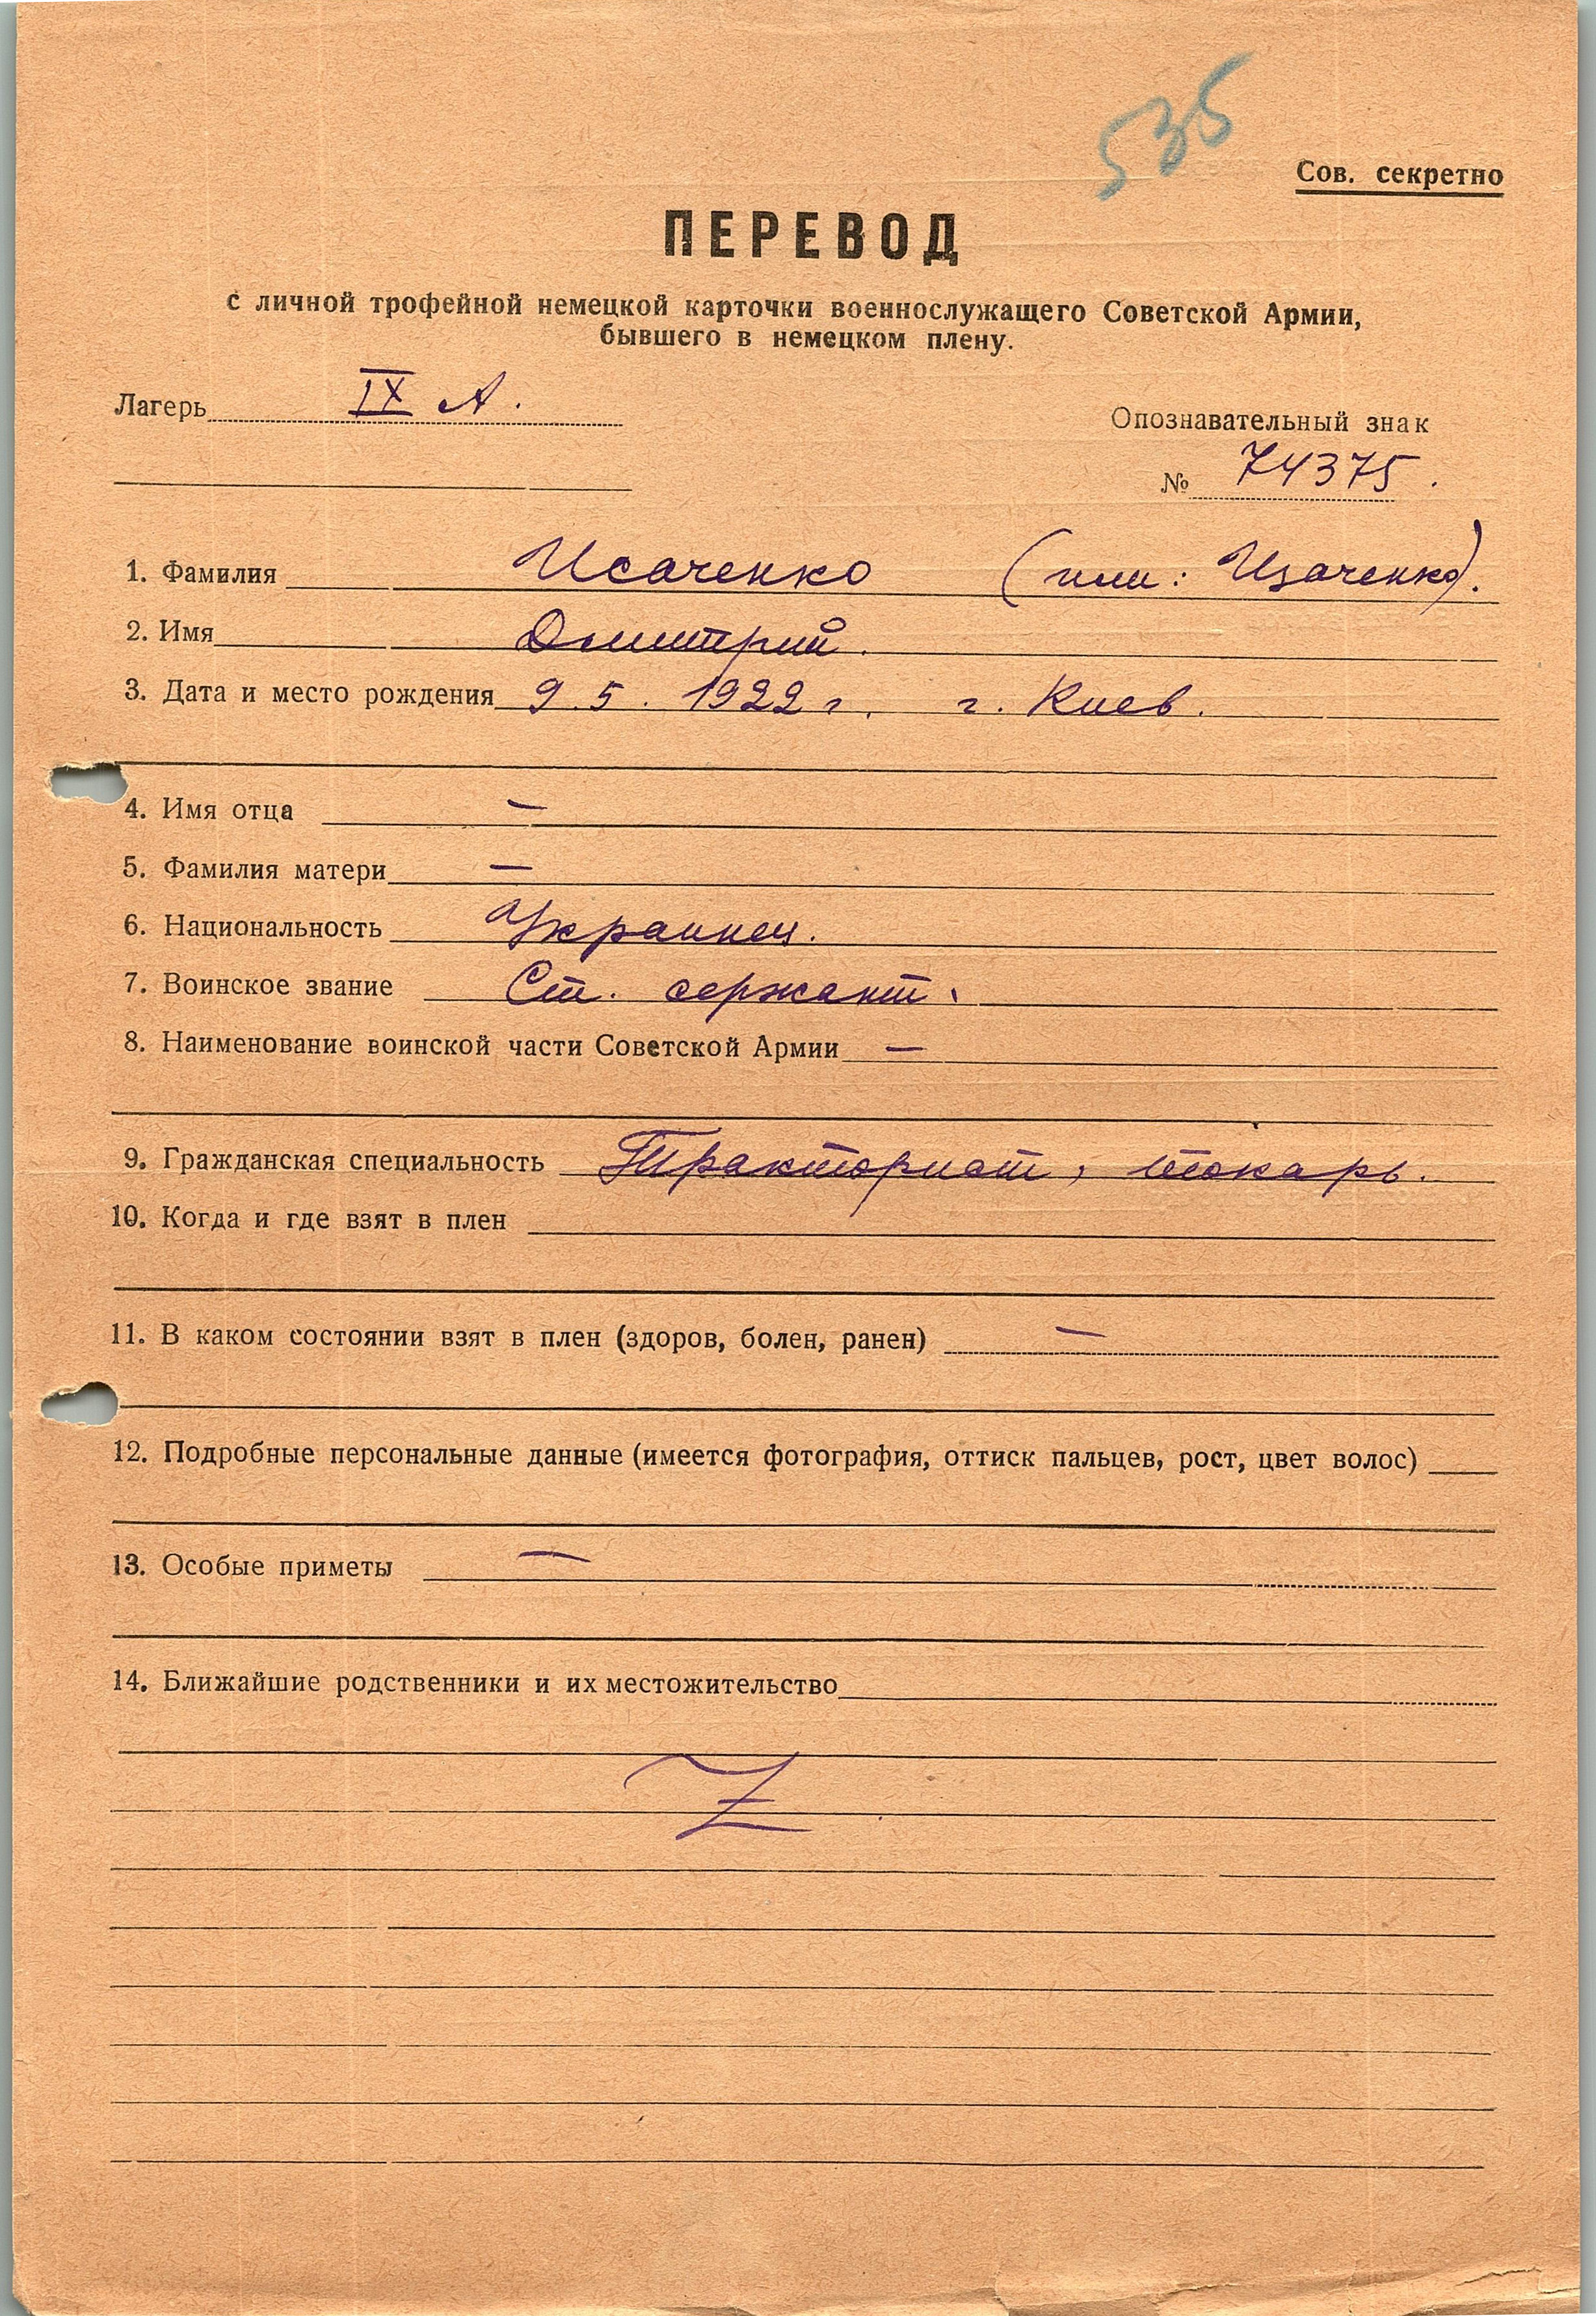 535
Сов. секретно
ПЕРЕВОД
с личной трофейной немецкой карточки военнослужащего Советской Армии,
бывшего в немецком плену.
Лагерь IX А.
Опознавательный знак
№ 74375.
1. Фамилия Исаченко (или: Изаченко).
2. Имя Дмитрий.
3. Дата и место рождения 9.5.1922 г. г. Киев.
4. Имя отца —
5. Фамилия матери —
6. Национальность Украинец.
7. Воинское звание Ст. сержант.
8. Наименование воинской части Советской Армии —
9. Гражданская специальность Тракторист, токарь.
10. Когда и где взят в плен
11. В каком состоянии взят в плен (здоров, болен, ранен) —
12. Подробные персональные данные (имеется фотография, оттиск пальцев, рост, цвет волос)
13. Особые приметы —
14. Ближайшие родственники и их местожительство
Z